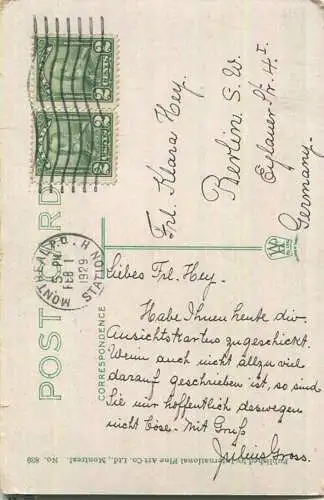 POST CARD
CORRESPONDENCE
2 CENTS 2
2 CENTS 2
MONTREAL P.Q. H STATION
5 PM
FEB 1
1929
Frl. Klara Hey.
Berlin S. W.
Eylauer Str. 4 I
Germany.
Liebes Frl. Hey.
Habe Ihnen heute div.
Ansichtskarten zugeschickt.
Wenn auch nicht allzu viel
darauf geschrieben ist, so sind
Sie mir hoffentlich deswegen
nicht böse. Mit Gruß
Julius Gross.
Published by International Fine Art Co. Ltd., Montreal.
No. 809